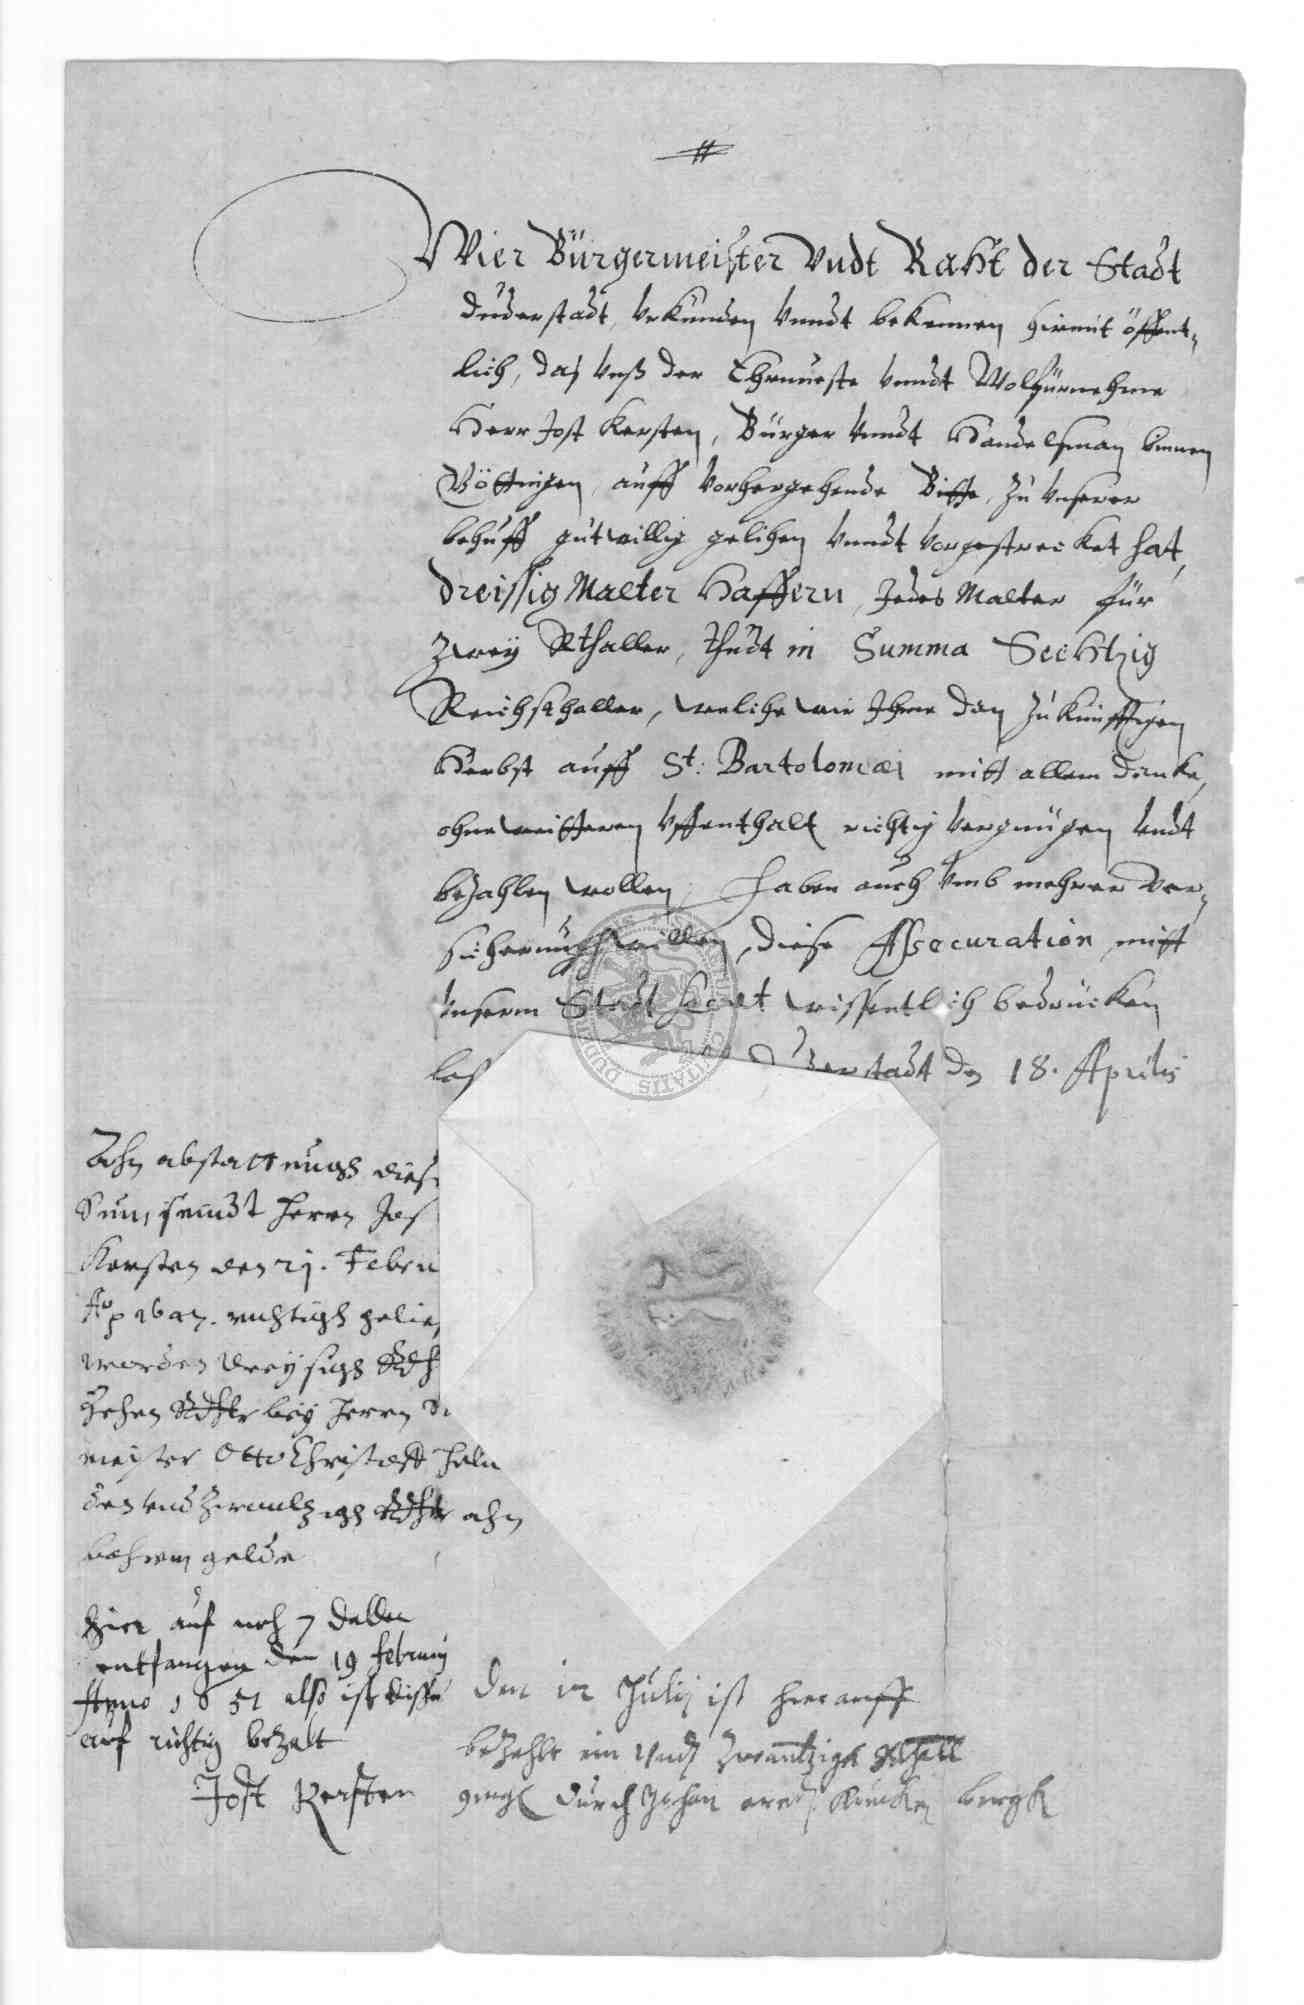 Wier Bürgermeister Vndt Raht der Stadt
Duderstadt, Vrkunden Vnndt bekennen hirmit öffent-
lich, das Vnß der Ehrnueste Vnndt Wolfürnehme
Herr Jost Kersten, Bürger Vnndt Handelsman binnen
Göttingen, auff Vorhergehende Bitte, zu Vnserer
behuff gutwillig gelihen Vnndt Vorgestrecket hat,
Dreissig Malter Haffern, Jedes Malter für
zwey Rthaller, thudt in Summa Sechtzig
Reichsthaller, welche wir Ihme den zukünfftigen
Herbst auff St: Bartolomæi mitt allem Dancke,
ohne weitteren Vffenthalt richtig Vergnügen Vndt
bezahlen wollen, haben auch Vmb mehrer Ver-
sicherungh willen, diese Assecuration mitt
Vnserm Stadt Secret wissentlich bedrücken
las Duderstadt den 18. Aprilis
Ahn abstattungh diese
Sum, seindt Herrn Jos
Kersten den 21. Febru
Ao richtigh gelie
worden dreysigh Rthlr
Zehen Rthlr bey Herrn
meister Otto Christoff
den Vnd zwantzigh Rthlr ahn
bahrem gelde
Hier auf noch 7 daller
entfangen den 19 february
Anno 1651 also ist disse
auf richtig bezalt
Jost Kersten
Den Julij ist hierauff
bezehlt ein Vnd zwanntzigh Rthall
durch Johan